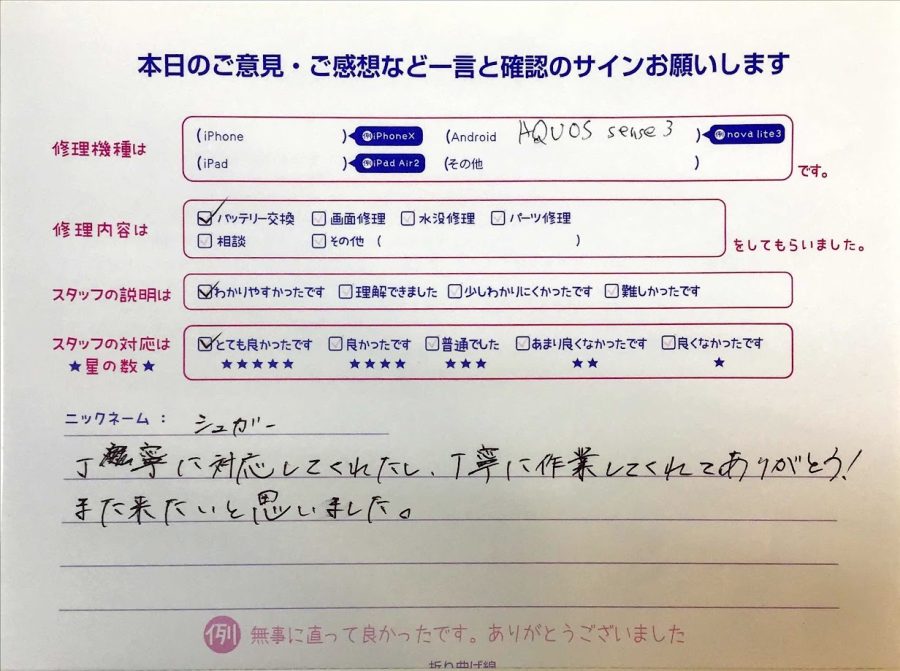 本日のご意見・ご感想など一言と確認のサインお願いします
修理機種は
(iPhone )例iPhoneX (Android AQUOS sense3 )例nova lite3
(iPad )例iPad Air2 (その他 )
です。
修理内容は
バッテリー交換 画面修理 水没修理 パーツ修理
相談 その他 ( )
をしてもらいました。
スタッフの説明は わかりやすかったです 理解できました 少しわかりにくかったです 難しかったです
スタッフの対応は とても良かったです 良かったです 普通でした あまり良くなかったです 良くなかったです
★星の数★ ★★★★★ ★★★★ ★★★ ★★ ★
ニックネーム: シュガー
丁寧に対応してくれたし、丁寧に作業してくれてありがとう!
また来たいと思いました。
例 無事に直って良かったです。ありがとうございました
折り曲げ線